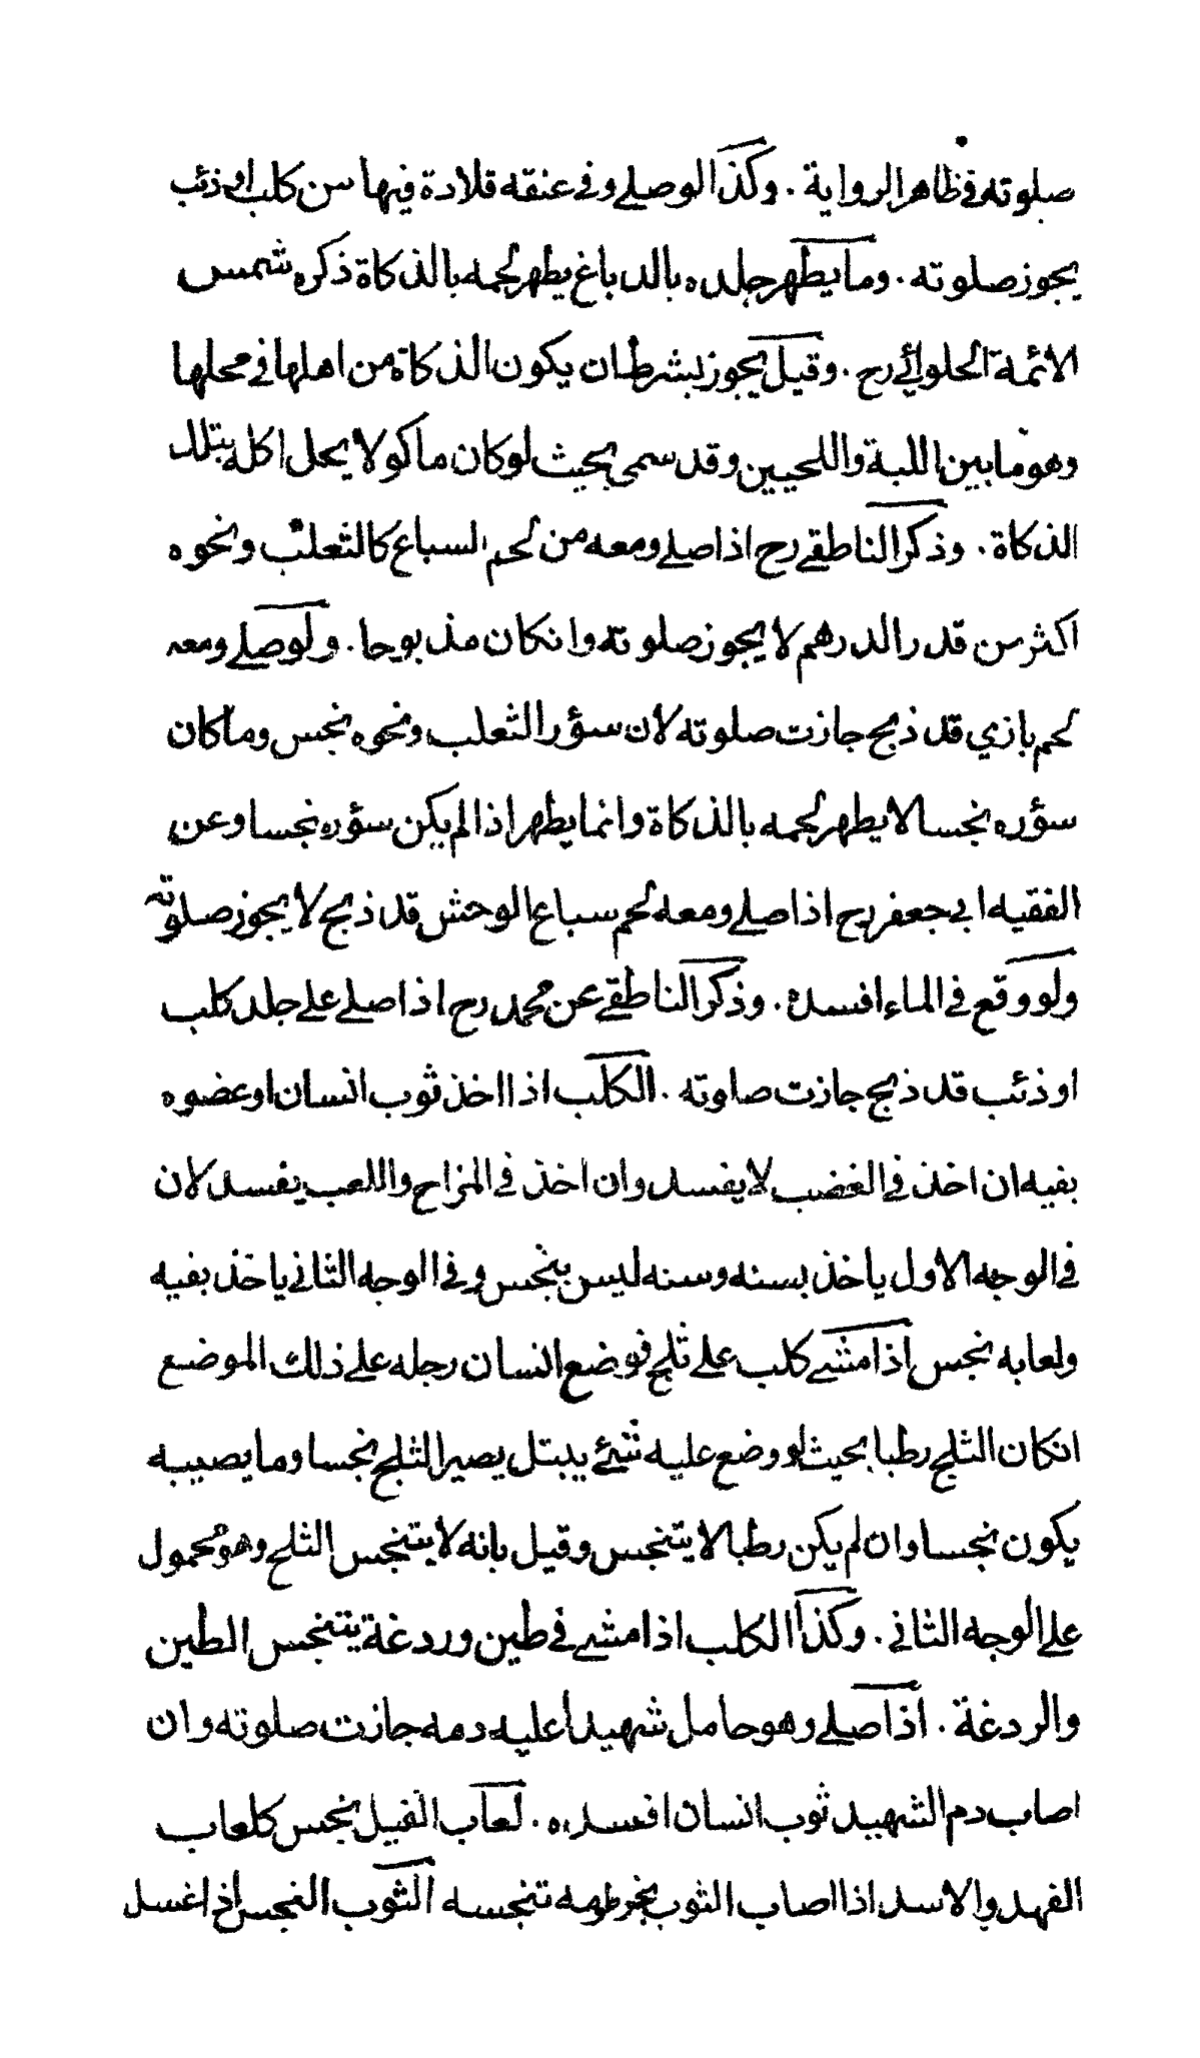 صلوته في ظاهر الرواية . وكذا لو صلے وفي عنقه قلادة فيها سن كلب او ذئب
يجوز صلوته . وما يطهر جلده بالدباغ يطهر لحمه بالذكاة ذكره شمس
الائمة الحلوائي رح . وقيل يجوز بشرط ان يكون الذكاة من اهلها في محلها
وهو ما بين اللبة واللحيين وقد سمى بحيث لو كان ماكولا يحل اكله بتلك
الذكاة . وذكر الناطقے رح اذا صلے ومعه من لحم السباع كالثعلب ونحوه
اكثر من قدر الدرهم لا يجوز صلوته وانكان مذبوحا . ولو صلے ومعه
لحم بازي قد ذبح جازت صلوته لان سؤر الثعلب ونحوه نجس وما كان
سؤره نجسا لا يطهر لحمه بالذكاة وانما يطهر اذا لم يكن سؤره نجسا وعن
الفقيه ابي جعفر رح اذا صلے ومعه لحم سباع الوحش قد ذبح لا يجوز صلوته
ولو وقع في الماء افسده . وذكر الناطقے عن محمد رح اذا صلے علے جلد كلب
او ذئب قد ذبح جازت صلوته . الكلب اذا اخذ ثوب انسان او عضوه
بفيه ان اخذ في الغضب لا يفسد وان اخذ في المزاح واللعب يفسد لان
في الوجه الاول ياخذ بسنه وسنه ليس بنجس وفي الوجه الثاني ياخذ بفيه
ولعابه نجس اذا مشے كلب علے ثلج فوضع انسان رجله علے ذلك الموضع
انكان الثلج رطبا بحيث لو وضع عليه شئے يبتل يصير الثلج نجسا وما يصيبه
يكون نجسا وان لم يكن رطبا لا يتنجس وقيل بانه لا يتنجس الثلج وهو محمول
علے الوجه الثاني . وكذا الكلب اذا مشے في طين وردغة يتنجس الطين
والردغة . اذا صلے وهو حامل شهيدا عليه دمه جازت صلوته وان
اصاب دم الشهيد ثوب انسان افسده . لعاب الفيل نجس كلعاب
الفهد والاسد اذا اصاب الثوب بخرطومه تنجسه الثوب النجس اذ اغسل